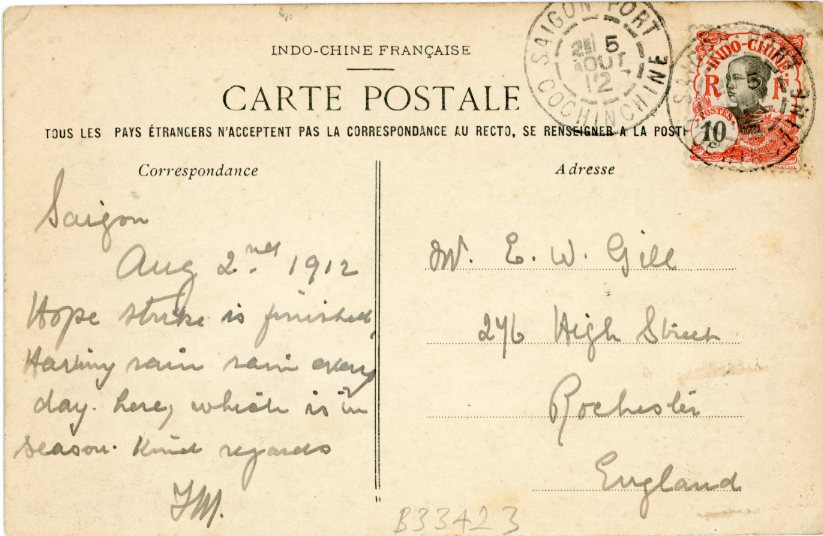 INDO-CHINE FRANÇAISE
CARTE POSTALE
TOUS LES PAYS ÉTRANGERS N'ACCEPTENT PAS LA CORRESPONDANCE AU RECTO, SE RENSEIGNER A LA POSTE
Correspondance
Saigon
Aug 2nd 1912
Hope strike is finished,
Having rain rain every
day. here, which is in
season. Kind regards
Adresse
Mr. E. W. Gill
276 High Street
Rochester
England
SAIGON PORT
5
AOUT
12
COCHINCHINE
INDO-CHINE
R F
POSTES
10
B33423